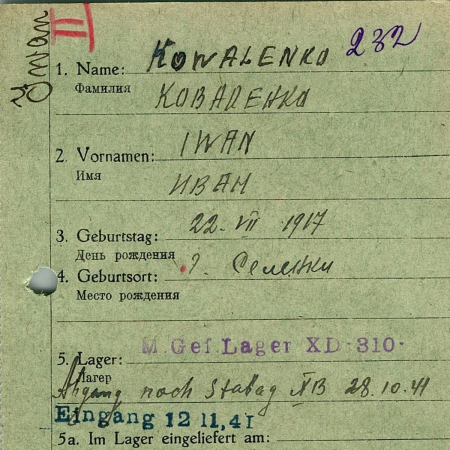 II
1. Name: KOWALENKO 232
Фамилия КОВАЛЕНКО
2. Vornamen: IWAN
Имя ИВАН
3. Geburtstag: 22. VII 1917
День рождения
4. Geburtsort:
Место рождения
5. Lager: M. Gef. Lager XD 310.
Лагер
Abgang nach Stalag XB 28.10.41
Eingang 12 11,41
5a. Im Lager eingeliefert am: